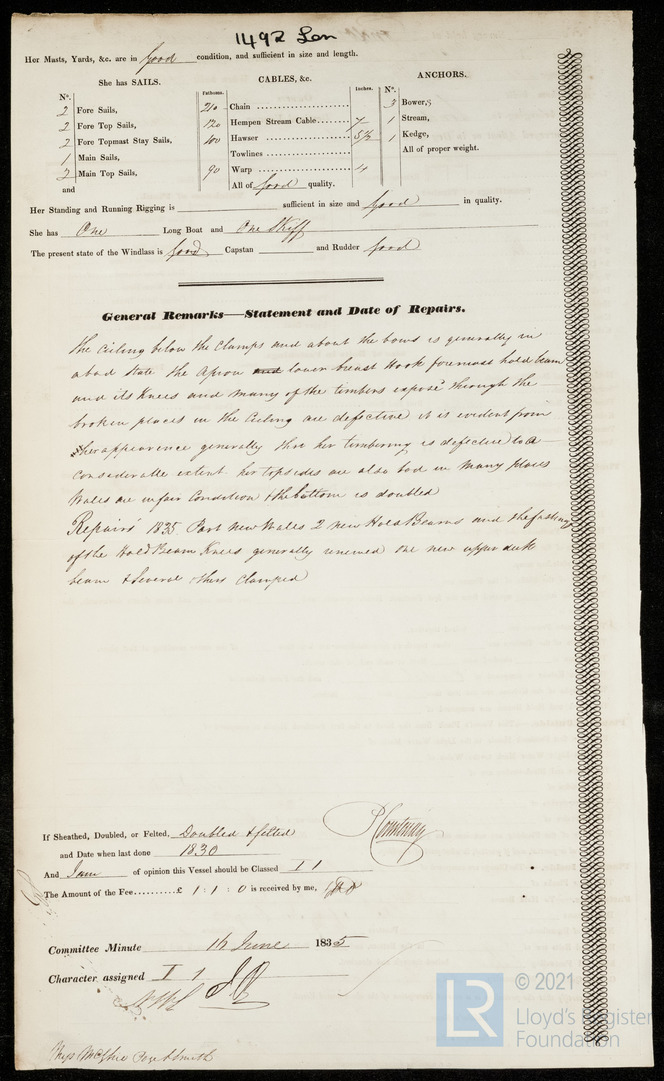 1492 Lon
Her Masts, Yards, &c. are in good condition, and sufficient in size and length.
She has SAILS. CABLES, &c. ANCHORS.
N°. Fathoms. Inches. N°.
2 Fore Sails, 210 Chain 3 Bowers,
2 Fore Top Sails, 120 Hempen Stream Cable 7 1 Stream,
2 Fore Topmast Stay Sails, 100 Hawser 5½ 1 Kedge,
1 Main Sails, Towlines All of proper weight.
2 Main Top Sails, 90 Warp 4
and All of good quality.
Her Standing and Running Rigging is sufficient in size and good in quality.
She has One Long Boat and One Skiff
The present state of the Windlass is good Capstan and Rudder good
General Remarks—Statement and Date of Repairs.
The Ceiling below the Clamps and about the bows is generally in
a bad state the Apron and lower breast Hook foremost hold beam
and its Knees and many of the timbers expos'd through the
broken places in the Ceiling are defective it is evident from
her appearance generally that her timbering is defective to a
considerable extent her topsides are also bad in many places
Wales are in fair Condition & the bottom is doubled
Repairs 1835 Part new Wales 2 new Hold Beams and the fastngs
of the Hold Beam Knees generally renewed one new upper deck
beam & several others clamped
If Sheathed, Doubled, or Felted, Doubled & felted
and Date when last done 1830
And I am of opinion this Vessel should be Classed I 1
The Amount of the Fee..........£ 1 : 1 : 0 is received by me,
Courtenay
Committee Minute 16 June 1835
Character assigned I 1
© 2021
LR Lloyd's Register
Foundation